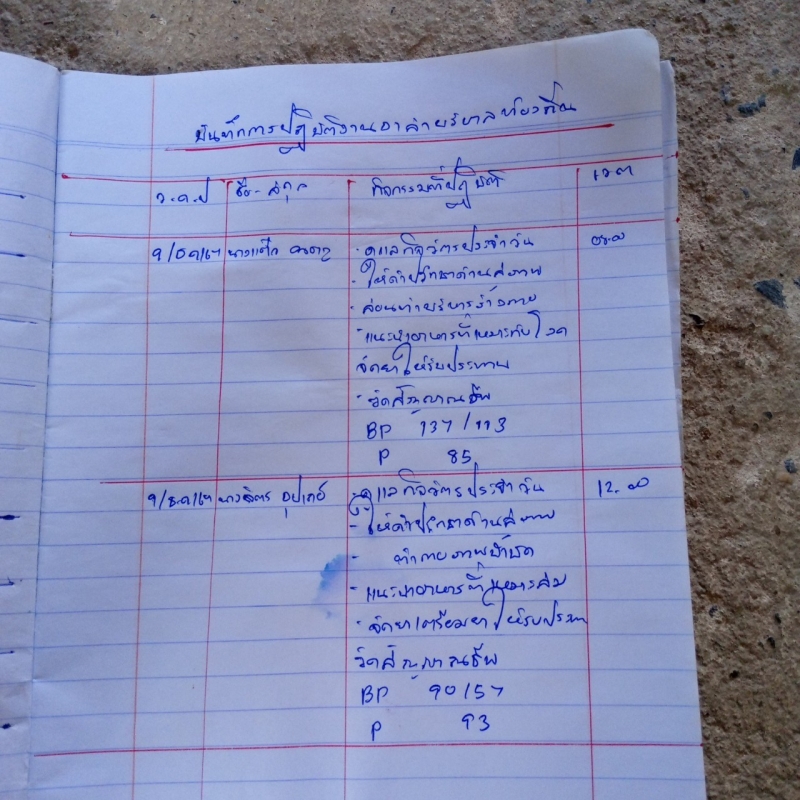 บันทึกการปฏิบัติงานอาสาบริบาลท้องถิ่น
ว.ด.ป ชื่อ-สกุล กิจกรรมที่ปฏิบัติ เวลา
นาง - ดูแลกิจวัตรประจำวัน
- ให้คำปรึกษาด้านสุขภาพ
- สอนท่าบริหารร่างกาย
- แนะนำอาหารที่เหมาะกับโรค
จัดยาให้รับประทาน
- วัดสัญญาณชีพ
BP 137/113
P 85
นาง - ดูแลกิจวัตรประจำวัน 12.00
- ให้คำปรึกษาด้านสุขภาพ
- ทำกายภาพบำบัด
- แนะนำอาหารที่เหมาะสม
- จัดยาเตรียมยาให้รับประทาน
วัดสัญญาณชีพ
BP 90/57
P 93